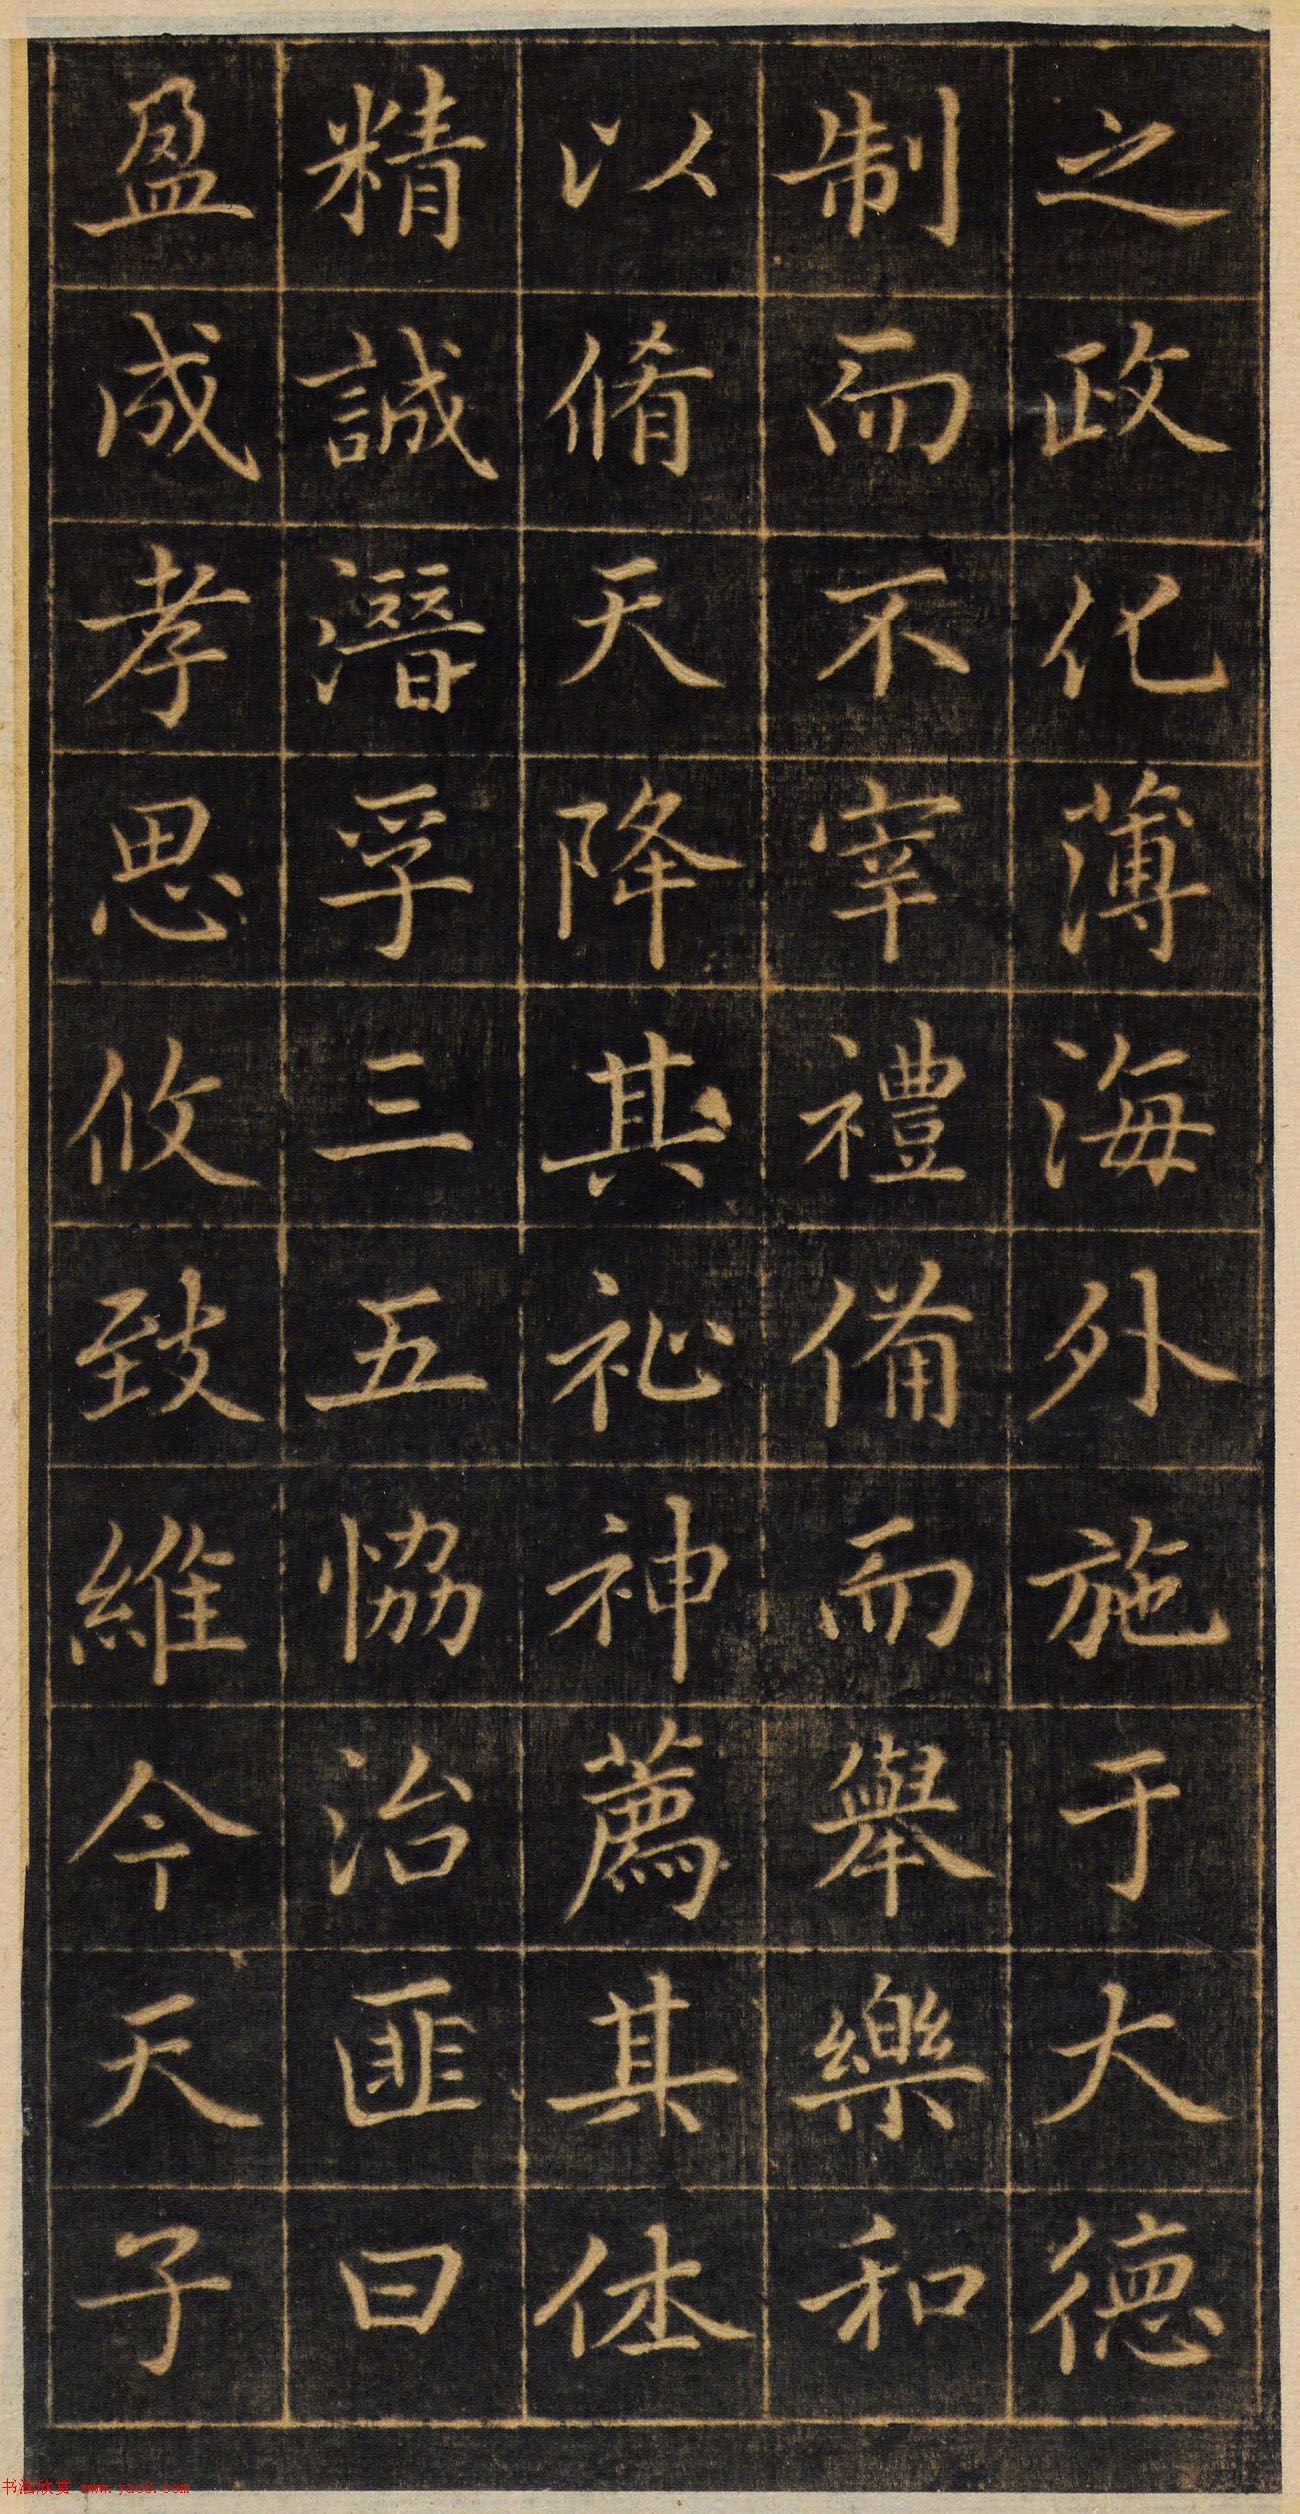 之政化薄海外施于大德
制而不宰禮備而舉樂和
以脩天降其祉神薦其休
精誠潛孚三五恊治匪曰
盈成孝思攸致維今天子
书法欣赏 www.yac8.com